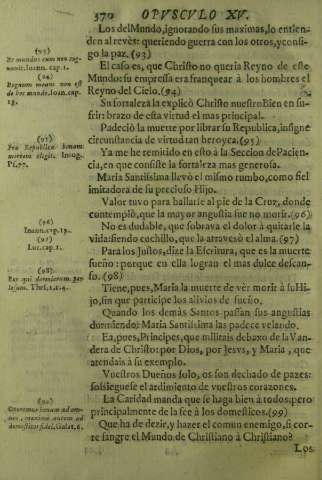 370 OPVSCVLO XV.
Los del Mundo, ignorando sus maximas, lo entien-
den al revès: queriendo guerra con los otros, y consi-
go la paz. (93)
El caso es, que Christo no queria Reyno de este
Mundo: su empressa era franquear à los hombres el
Reyno del Cielo. (94)
Su fortaleza la explicò Christo nuestro Bien en su-
frir: brazo de esta virtud el mas principal.
Padeciò la muerte por librar su Republica, insigne
circunstancia de virtud tan heroyca. (95)
Ya me he remitido en esto à la Seccion de Pacien-
cia, en que consiste la fortaleza mas generosa.
Maria Santissima llevò el mismo rumbo, como fiel
imitadora de su precioso Hijo.
Valor tuvo para hallarse al pie de la Cruz, donde
contemplò, que la mayor angustia fue no morir. (96)
No es dudable, que sobrava el dolor à quitarle la
vida: siendo cuchillo, que la atravesò el alma. (97)
Para los Justos, dize la Escritura, que es la muerte
sueño: porque en ella logran el mas dulce descan-
so. (98)
Tiene, pues, Maria la muerte de vèr morir à su Hi-
jo, sin que participe los alivios de sueño.
Quando los demás Santos passan sus angustias
durmiendo: Maria Santissima las padece velando.
Ea, pues, Principes, que militais debaxo de la Van-
dera de Christo: por Dios, por Jesvs, y Maria, que
atendais à su exemplo.
Vuestros Dueños solo, os son dechado de pazes:
sossieguese el ardimiento de vuestros corazones.
La Caridad manda que se haga bien à todos: pero
principalmente de la fee à los domesticos. (99)
Que ha de dezir, y hazer el comun enemigo, si cor-
re sangre el Mundo de Christiano à Christiano?
Los
(93)
Et mundus eum non cog-
novit. Ioann. cap. 1.
(94)
Regnum meum non est
de hoc mundo. Ioan. cap.
18.
(95)
Pro Republica bonam
mortem
Ps. 77.
(96)
Ioann. cap. 19.
(97)
Luc. cap. 2.
(98)
Eos qui dormierunt per
Iesum. Thes. 1. c. 4.
(99)
Operemur bonum ad om-
nes, maximè autem ad
domesticos fidei. Galat. 6.